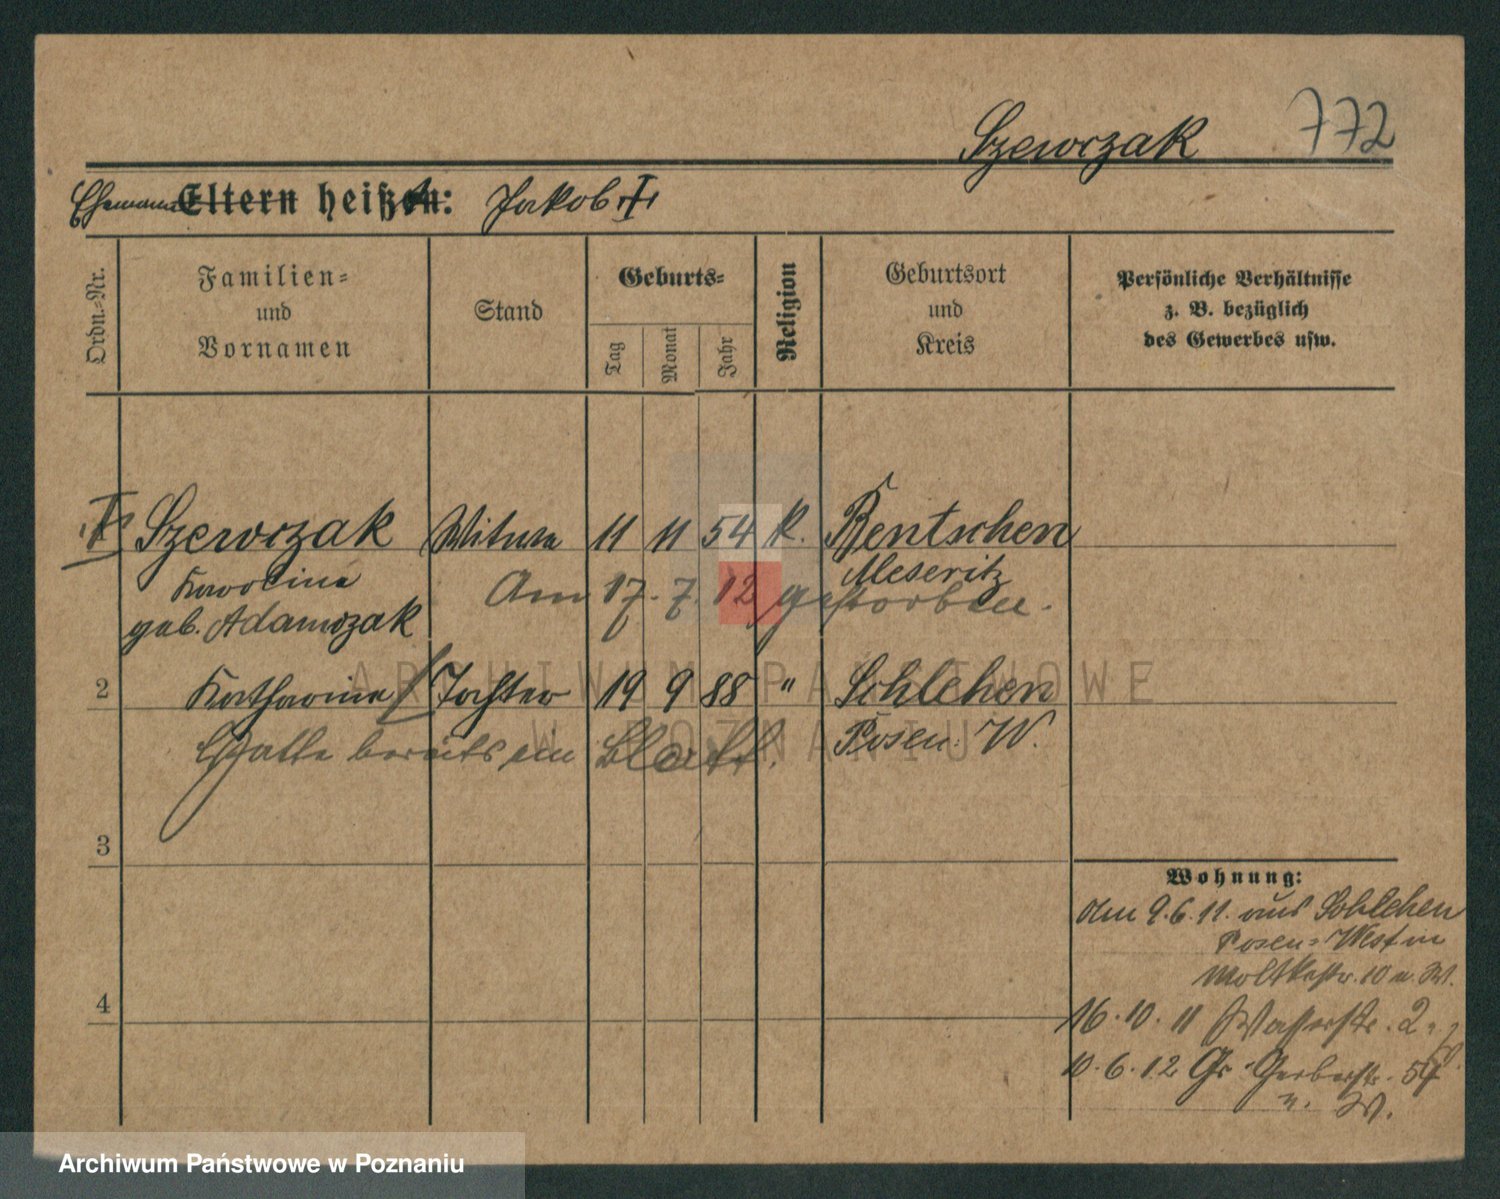 Szewczak 772
Ehemann Eltern heißt: Jakob
Ordn.-Nr.
Familien-
und
Vornamen
Stand
Geburts-
Tag
Monat
Jahr
Religion
Geburtsort
und
Kreis
Persönliche Verhältnisse
z. B. bezüglich
des Gewerbes usw.
Szewczak Witwe 11 11 54 k. Bentschen
Karolina Meseritz
geb. Adamczak
Am 17. 7. 12 gestorben.
2 Katharina Tochter 19 9 88 " Schlehen
Posen W.
Hatte bereits ein Blatt.
3
4
Wohnung:
Am 9.6.11. aus Schlehen
Posen-West in
Moltkestr. 10
16.10.11 Wasserstr. 2
10.6.12 Gr Gerberstr. 54
ARCHIWUM PAŃSTWOWE
W POZNANIU
Archiwum Państwowe w Poznaniu